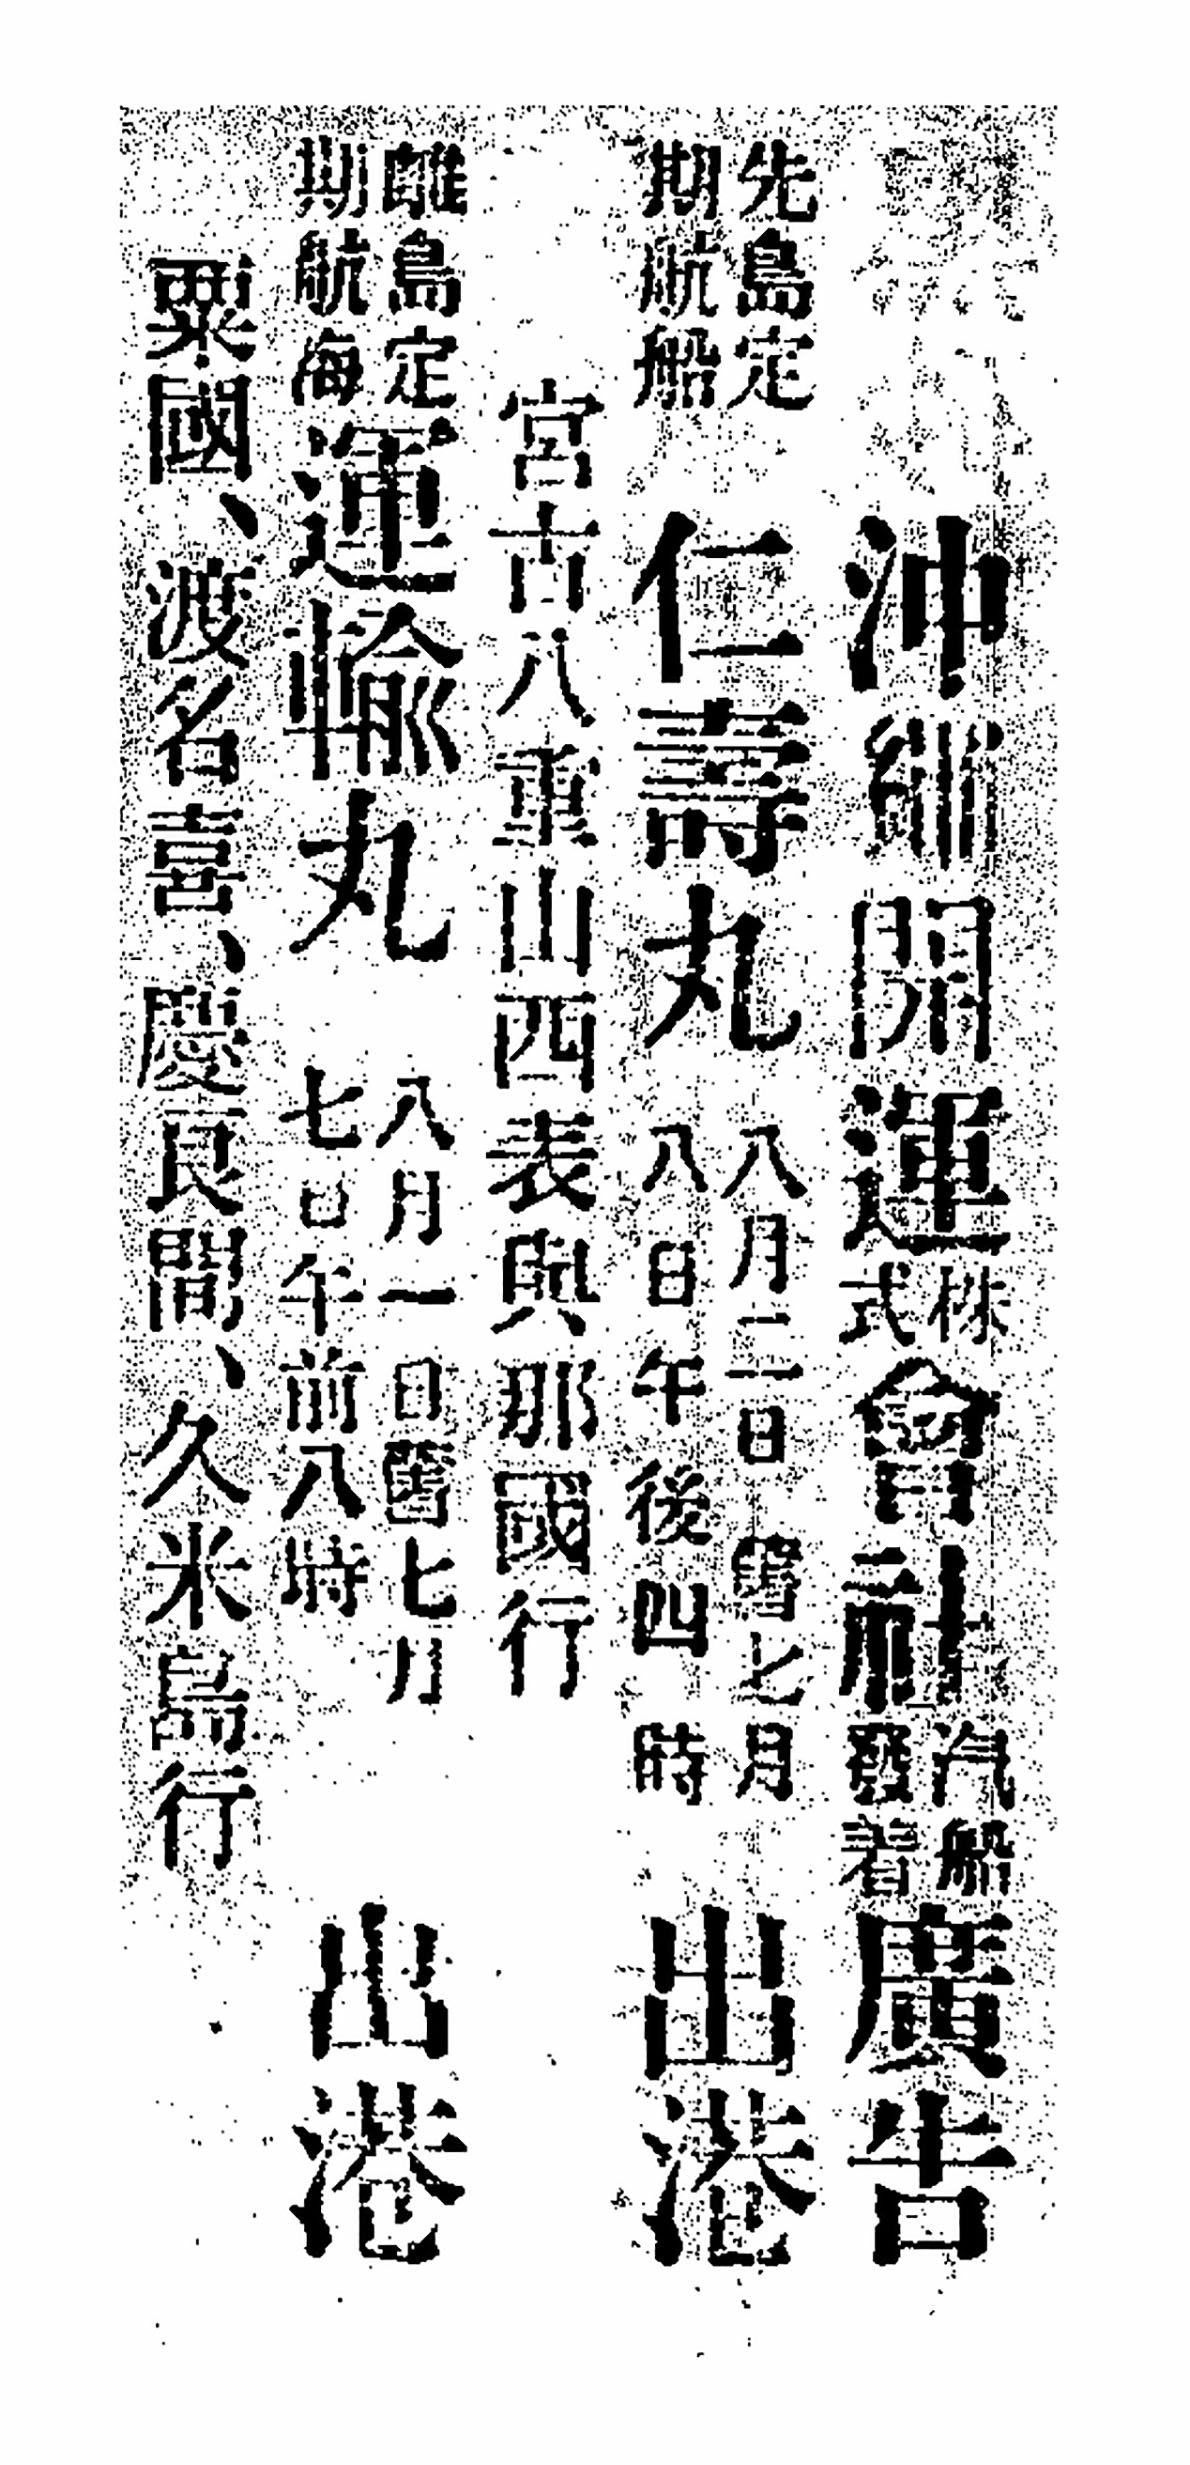 沖縄開運株式會社汽船發着廣告
先島定期航船 仁壽丸 八月二日舊七月八日午後四時 出港
宮古八重山西表與那國行
離島定期航海 運輸丸 八月一日舊七月七日午前八時 出港
粟國、渡名喜、慶良間、久米島行